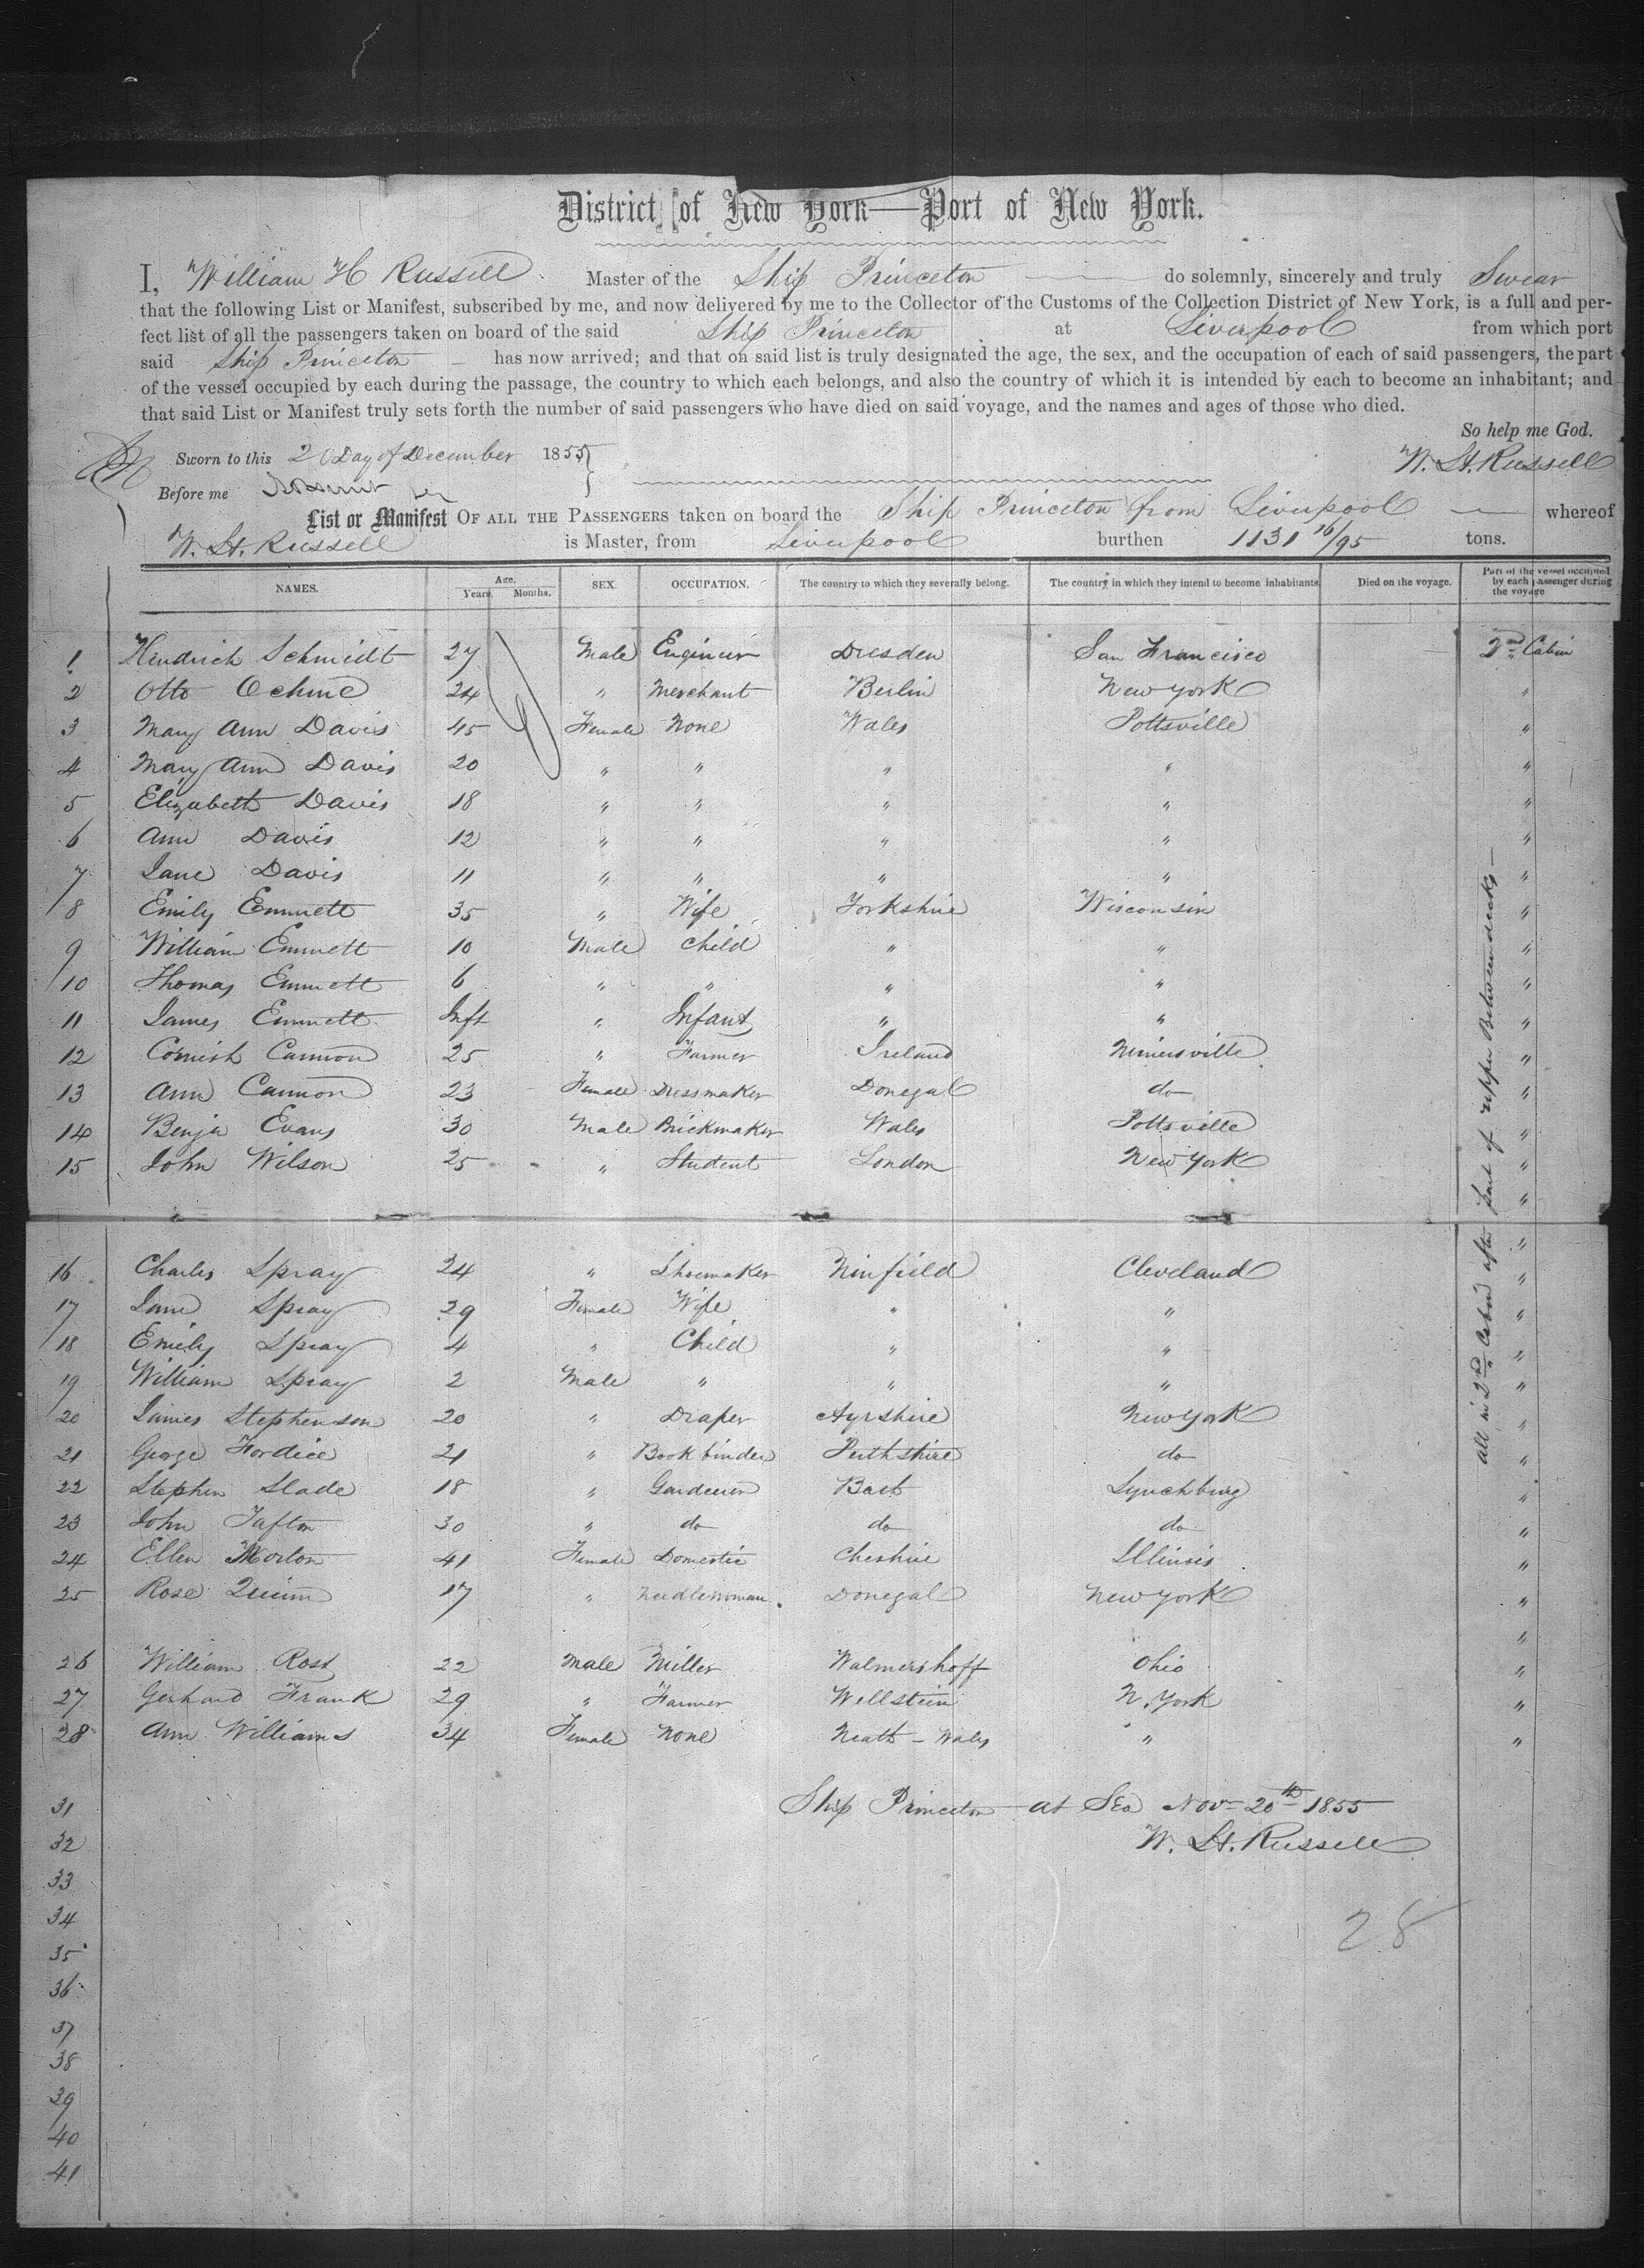 District of New York—Port of New York.
I, William H Russell Master of the Ship Princeton do solemnly, sincerely and truly Swear
that the following List or Manifest, subscribed by me, and now delivered by me to the Collector of the Customs of the Collection District of New York, is a full and per-
fect list of all the passengers taken on board of the said Ship Princeton at Liverpool from which port
said Ship Princeton has now arrived; and that on said list is truly designated the age, the sex, and the occupation of each of said passengers, the part
of the vessel occupied by each during the passage, the country to which each belongs, and also the country of which it is intended by each to become an inhabitant; and
that said List or Manifest truly sets forth the number of said passengers who have died on said voyage, and the names and ages of those who died.
So help me God.
Sworn to this Day of December 1855 W. H. Russell
Before me
List or Manifest OF ALL THE PASSENGERS taken on board the Ship Princeton from Liverpool whereof
W. H. Russell is Master, from Liverpool burthen 1131 16/95 tons.
NAMES. Age. Years. Months. SEX. OCCUPATION. The country to which they severally belong. The country in which they intend to become inhabitants. Died on the voyage. Part of the vessel occupied by each passenger during the voyage
1 Hendrich Schmidt 27 Male Engineer Dresden San Francisco 2nd Cabin
2 Otto Oehme 24 " Merchant Berlin New York "
3 Mary Ann Davis 45 Female None Wales Pottsville "
4 Mary Ann Davis 20 " " " " "
5 Elizabeth Davis 18 " " " " "
6 Ann Davis 12 " " " " "
7 Jane Davis 11 " " " " "
8 Emily Emmett 35 " Wife Yorkshire Wisconsin "
9 William Emmett 10 Male Child " " "
10 Thomas Emmett 6 " " " " "
11 James Emmett Inft " Infant " " "
12 Cornish Cannon 25 " Farmer Ireland "
13 Ann Cannon 23 Female Dressmaker Donegal do "
14 Benja Evans 30 Male Brickmaker Wales Pottsville "
15 John Wilson 25 " Student London New York "
16 Charles Spray 24 " Shoemaker Ninfield Cleveland "
17 Jane Spray 29 Female Wife " " "
18 Emily Spray 4 " Child " " "
19 William Spray 2 Male " " " "
20 James Stephenson 20 " Draper Ayrshire New York "
21 George Fordice 21 " Bookbinder Perthshire do "
22 Stephen Slade 18 " Gardener Lynchburg "
23 John Tafton 30 " do do do "
24 Ellen Morton 41 Female Domestic Cheshire Illinois "
25 Rose Quinn 17 " Needlewoman Donegal New York "
26 William Rost 22 Male Miller Walmershoff Ohio "
27 Gerhard Frank 29 " Farmer Wellstein N. York "
28 Ann Williams 34 Female None Neath - Wales " "
All in 2nd Cabin after part of upper Between decks
31 Ship Princeton at Sea Nov 20th 1855
32 W. H. Russell
33
34 28
35
36
37
38
39
40
41